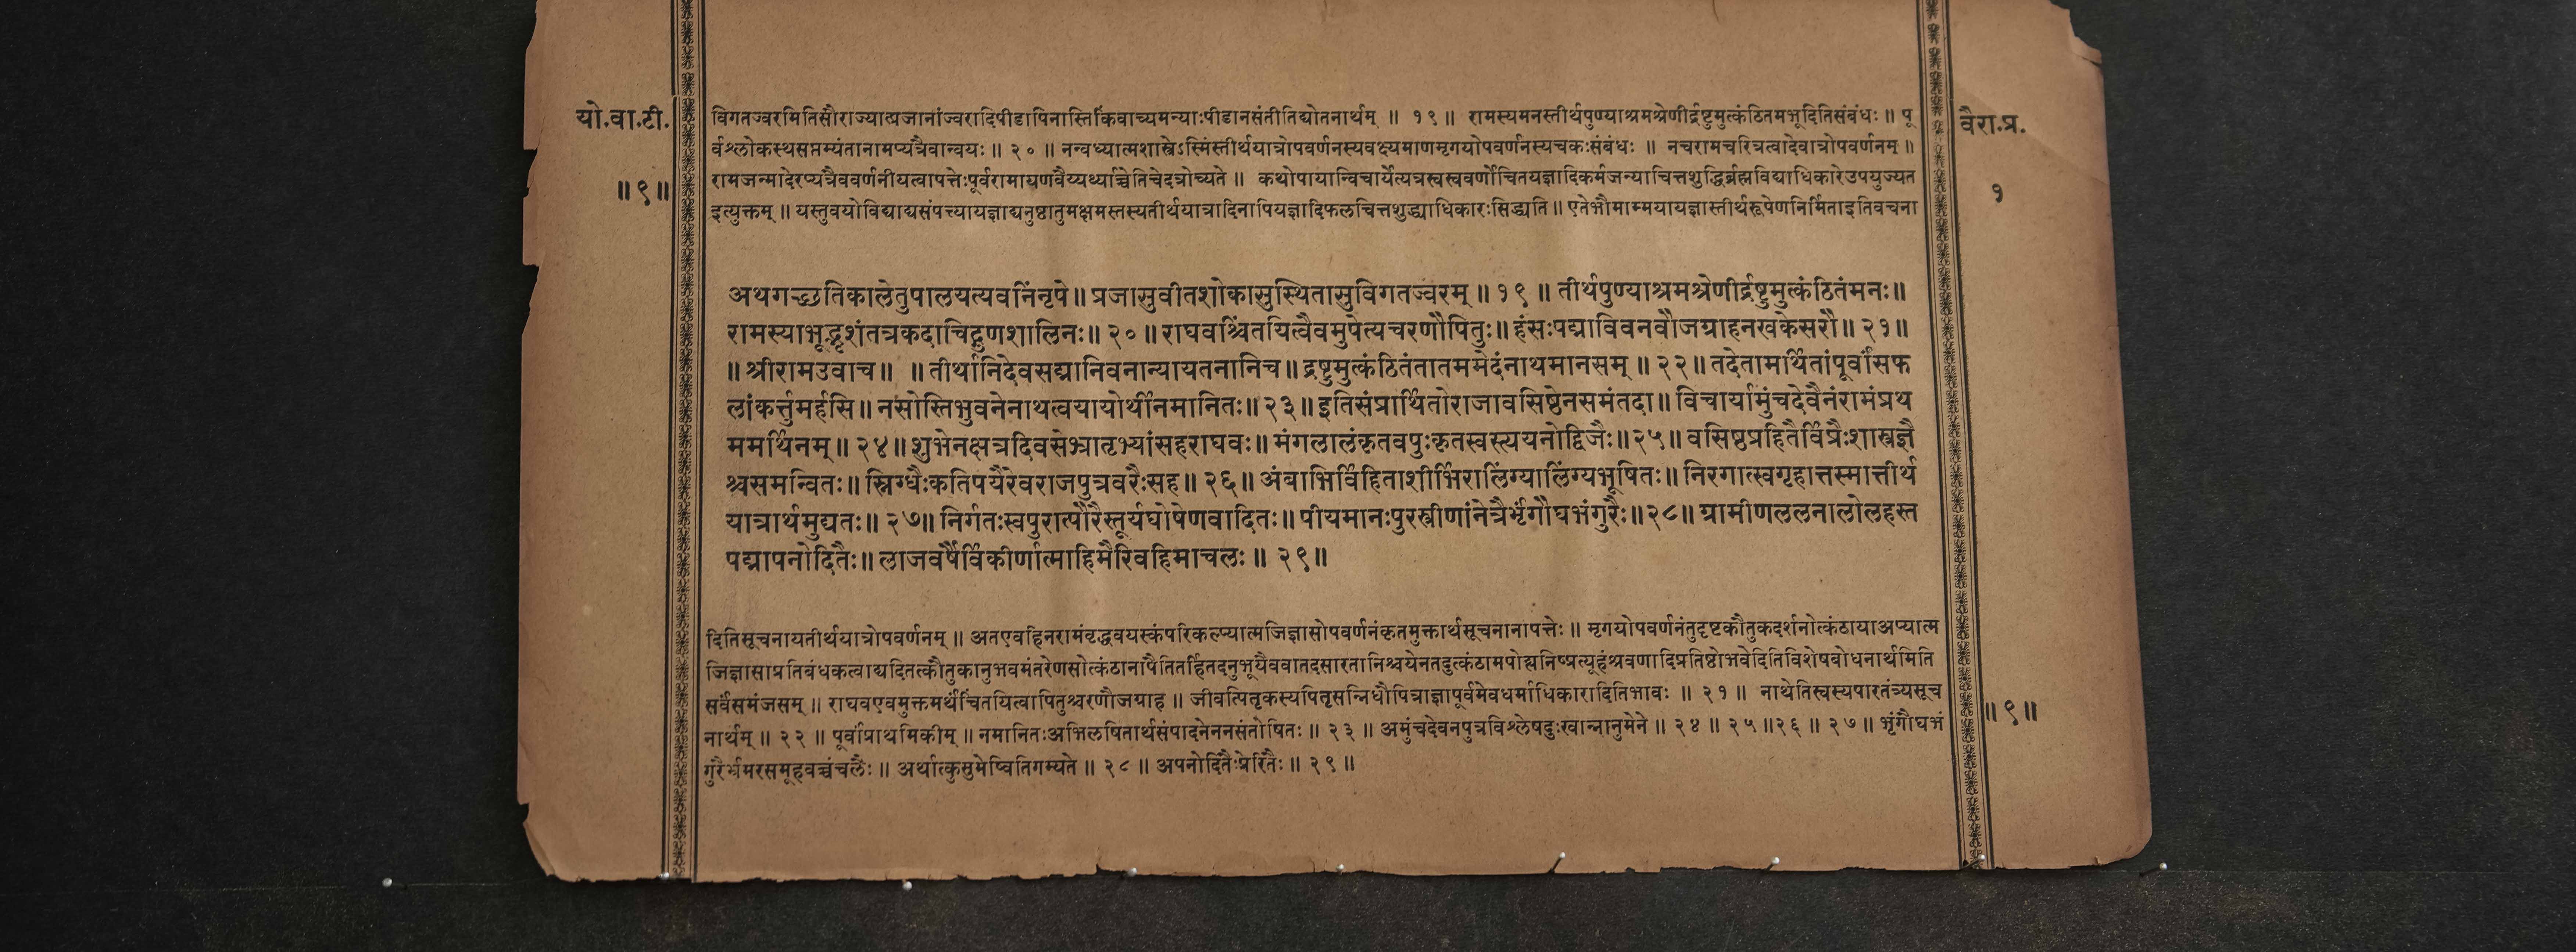 यो.वा.टी.
॥९॥
वैरा.प्र.
१
विगतज्वरमितिसौराज्यात्प्रजानांज्वरादिपीडापिनास्तिकिंवाच्यमन्याःपीडानसंतीतिद्योतनार्थम् ॥ १९ ॥ रामस्यमनस्तीर्थपुण्याश्रमश्रेणीर्द्रष्टुमुत्कंठितमभूदितिसंबंधः ॥ पू
र्वश्लोकस्थसप्तम्यंतानामप्यत्रैवान्वयः ॥ २० ॥ नन्वध्यात्मशास्त्रेऽस्मिंस्तीर्थयात्रोपवर्णनस्यवक्ष्यमाणमृगयोपवर्णनस्यचकःसंबंधः ॥ नचरामचरित्रत्वादेवात्रोपवर्णनम् ॥
रामजन्मादेरप्यत्रैववर्णनीयत्वापत्तेःपूर्वरामायणवैय्यर्थ्याच्चेतिचेदत्रोच्यते ॥ कथोपायान्विचार्येत्यत्रस्वस्ववर्णोचितयज्ञादिकर्मजन्याचित्तशुद्धिर्ब्रह्मविद्याधिकारेउपयुज्यत
इत्युक्तम् ॥ यस्तुवयोविद्याद्यसंपत्त्यायज्ञाद्यनुष्ठातुमक्षमस्तस्यतीर्थयात्रादिनापियज्ञादिफलचित्तशुद्ध्याधिकारःसिद्ध्यति ॥ एतेभौमाम्मयायज्ञास्तीर्थरूपेणनिर्मिताइतिवचना
अथगच्छतिकालेतुपालयत्यवनिंनृपे ॥ प्रजासुवीतशोकासुस्थितासुविगतज्वरम् ॥ १९ ॥ तीर्थपुण्याश्रमश्रेणीर्द्रष्टुमुत्कंठितंमनः ॥
रामस्याभूद्भृशंतत्रकदाचिद्गुणशालिनः ॥ २० ॥ राघवश्चिंतयित्वैवमुपेत्यचरणौपितुः ॥ हंसःपद्माविवनवौजग्राहनखकेसरौ ॥ २१ ॥
॥ श्रीरामउवाच ॥ ॥ तीर्थानिदेवसद्मानिवनान्यायतनानिच ॥ द्रष्टुमुत्कंठितंतातममेदंनाथमानसम् ॥ २२ ॥ तदेतामर्थितांपूर्वांसफ
लांकर्त्तुमर्हसि ॥ नसोस्तिभुवनेनाथत्वयायोर्थीनमानितः ॥ २३ ॥ इतिसंप्रार्थितोराजावसिष्ठेनसमंतदा ॥ विचार्यामुंचदेवैनंरामंप्रथ
ममर्थिनम् ॥ २४ ॥ शुभेनक्षत्रदिवसेभ्रातृभ्यांसहराघवः ॥ मंगलालंकृतवपुःकृतस्वस्त्ययनोद्विजैः ॥ २५ ॥ वसिष्ठप्रहितैर्विप्रैःशास्त्रज्ञै
श्चसमन्वितः ॥ स्निग्धैःकतिपयैरेवराजपुत्रवरैःसह ॥ २६ ॥ अंबाभिर्विहिताशीर्भिरालिंग्यालिंग्यभूषितः ॥ निरगात्स्वगृहात्तस्मात्तीर्थ
यात्रार्थमुद्यतः ॥ २७ ॥ निर्गतःस्वपुरात्पौरैस्तूर्यघोषेणवादितः ॥ पीयमानःपुरस्त्रीणांनेत्रैर्भृंगौघभंगुरैः ॥ २८ ॥ ग्रामीणललनालोलहस्त
पद्मापनोदितैः ॥ लाजवर्षैर्विकीर्णात्माहिमैरिवहिमाचलः ॥ २९ ॥
दितिसूचनायतीर्थयात्रोपवर्णनम् ॥ अतएवहिनरामंवृद्धवयस्कंपरिकल्प्यात्मजिज्ञासोपवर्णनंकृतमुक्तार्थसूचनानापत्तेः ॥ मृगयोपवर्णनंतुदृष्टकौतुकदर्शनोत्कंठायाअप्यात्म
जिज्ञासाप्रतिबंधकत्वाद्यदितत्कौतुकानुभवमंतरेणसोत्कंठानापैतितर्हितदनुभूयैववातदसारतानिश्चयेनतदुत्कंठामपोह्यनिष्प्रत्यूहंश्रवणादिप्रतिष्ठोभवेदितिविशेषबोधनार्थमिति
सर्वंसमंजसम् ॥ राघवएवमुक्तमर्थंचिंतयित्वापितुश्चरणौजग्राह ॥ जीवत्पितृकस्यपितृसन्निधौपित्राज्ञापूर्वमेवधर्माधिकारादितिभावः ॥ २१ ॥ नाथेतिस्वस्यपारतंत्र्यसूच
नार्थम् ॥ २२ ॥ पूर्वांप्राथमिकीम् ॥ नमानितःअभिलषितार्थसंपादनेननसंतोषितः ॥ २३ ॥ अमुंचदेवनपुत्रविश्लेषदुःखान्नानुमेने ॥ २४ ॥ २५ ॥ २६ ॥ २७ ॥ भृंगौघभं
गुरैर्भ्रमरसमूहवच्चंचलैः ॥ अर्थात्कुसुमेष्वितिगम्यते ॥ २८ ॥ अपनोदितैःप्रेरितैः ॥ २९ ॥
॥ ९ ॥